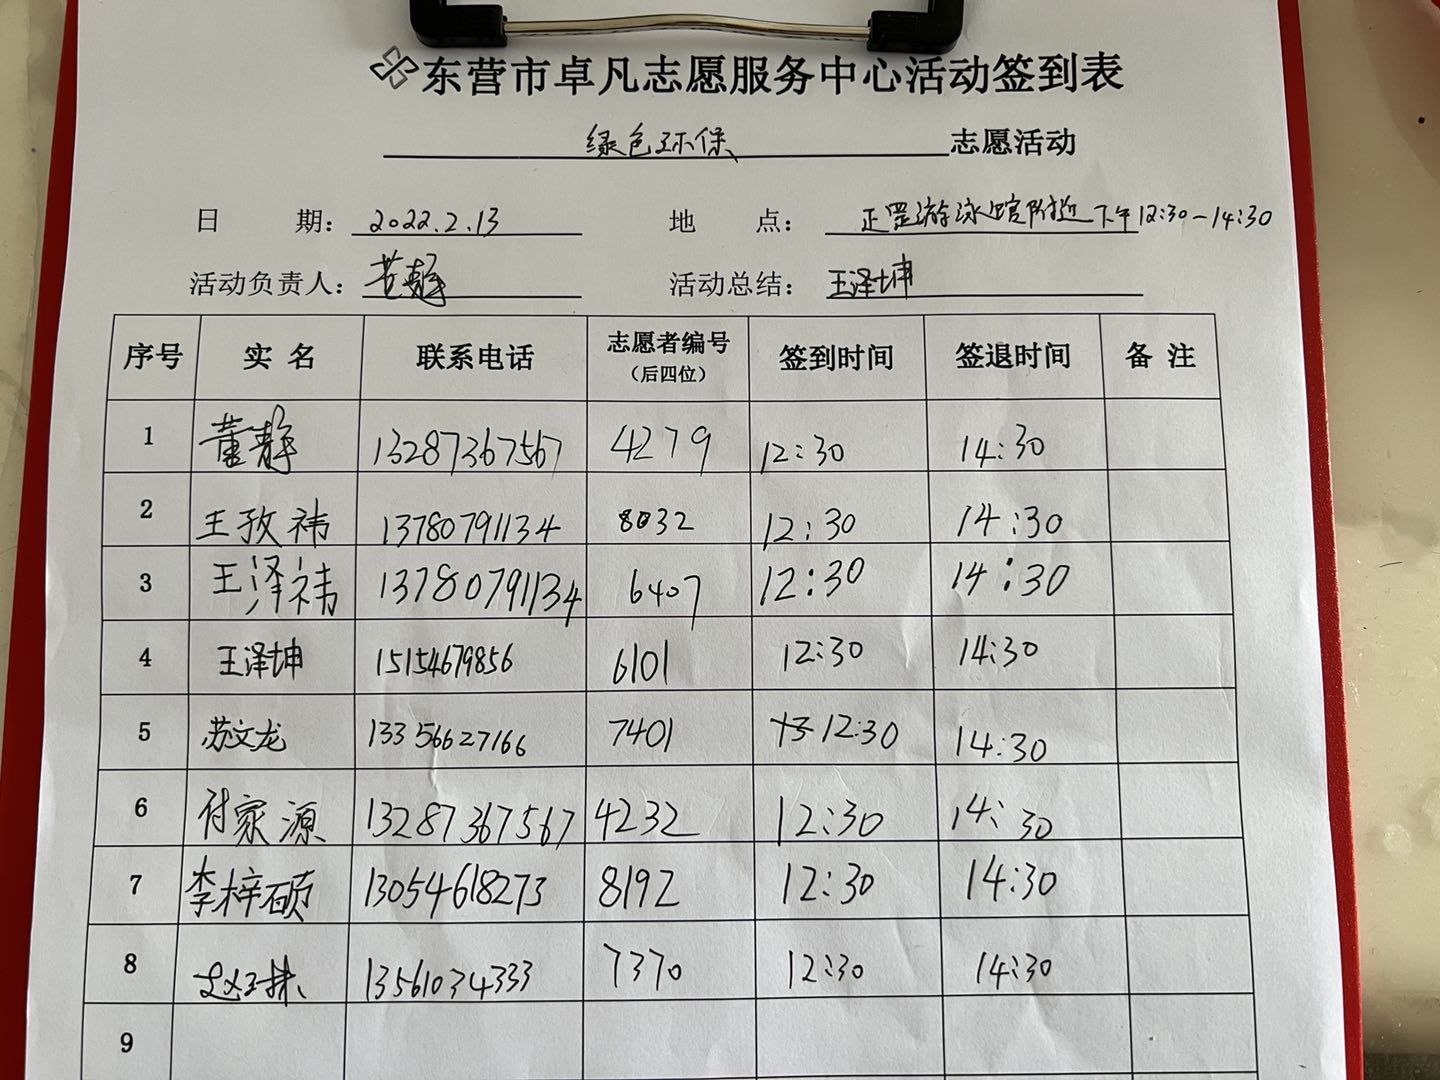 东营市卓凡志愿服务中心活动签到表
绿色环保 志愿活动
日 期： 2022.2.13 地 点： 正罡游泳馆附近 下午12:30-14:30
活动负责人： 董静 活动总结： 王泽坤
序号 实 名 联系电话 志愿者编号 （后四位） 签到时间 签退时间 备 注
1 董静 13287367567 4279 12:30 14:30
2 王孜祎 13780791134 8032 12:30 14:30
3 王泽祎 13780791134 6407 12:30 14:30
4 王泽坤 15154679856 6101 12:30 14:30
5 苏文龙 13356627166 7401 12:30 14:30
6 付家源 13287367567 4232 12:30 14:30
7 李梓硕 13054618273 8192 12:30 14:30
8 13561034333 7370 12:30 14:30
9